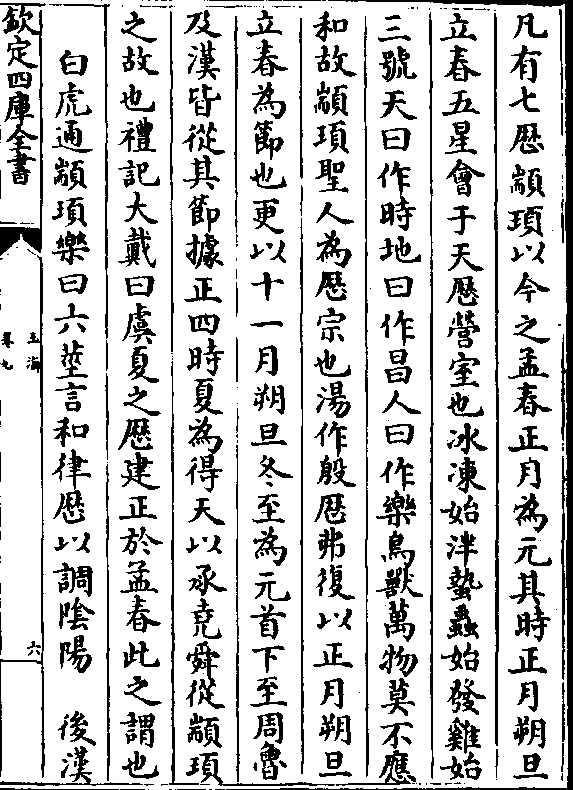 凡有七厯顓頊以今之孟春正月為元其時正月朔旦
立春五星會于天厯營室也氷凍始泮蟄蟲始發雞始
三號天曰作時地曰作昌人曰作樂鳥獸萬物莫不應
和故顓頊聖人為厯宗也湯作殷厯弗復以正月朔旦
立春為節也更以十一月朔旦冬至為元首下至周魯
及漢皆從其節據正四時夏為得天以承堯舜從顓頊
之故也禮記大戴曰虞夏之厯建正於孟春此之謂也
白虎通顓頊樂曰六莖言和律厯以調隂陽 後漢
欽定四庫全書
玉海
卷九
六